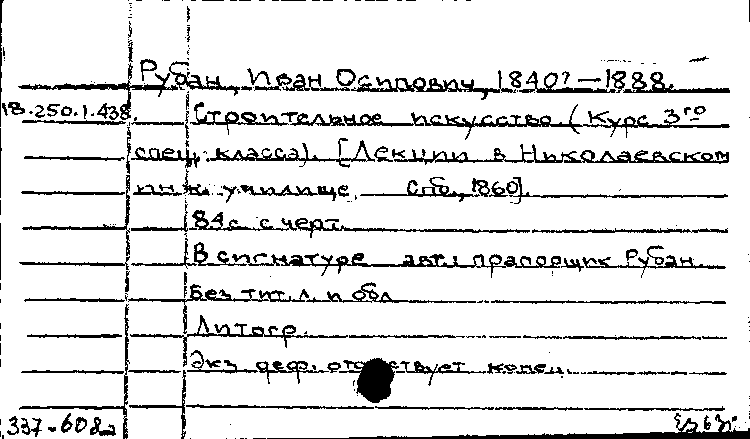 Рубан, Иван Осипович, 1840?—1888.
18.250.1.438. Строительное искусство (Курс 3го
спец. класса). [Лекции в Николаевском
инж. училище. Спб., 1860].
84с. с черт.
В сигнатуре авт.: прапорщик Рубан.
Без тит. л. и обл.
Литогр.
Экз. деф.: отсутствует конец.
337-608а